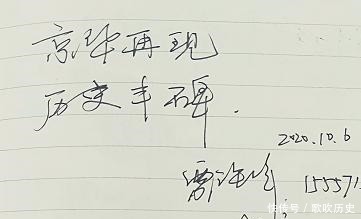 京华再现
历史丰碑.
2020.10.6
155571
快传号 / 歌吹历史